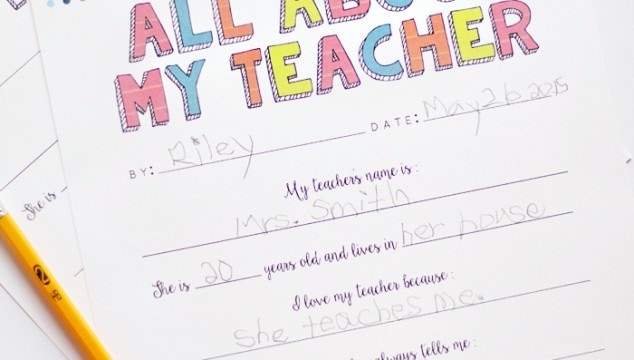 ALL ABOUT
MY TEACHER
BY: Riley DATE: May 26 2015
My teacher's name is:
Mrs. Smith
She is 20 years old and lives in her house
I love my teacher because:
She teaches me.
always tells me:
She is